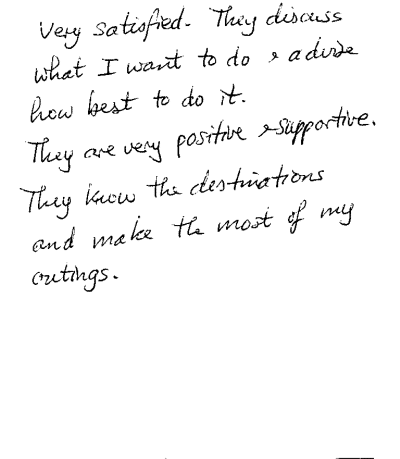 Very satisfied. They discuss
what I want to do & advise
how best to do it.
They are very positive & supportive.
They know the destinations
and make the most of my
outings.